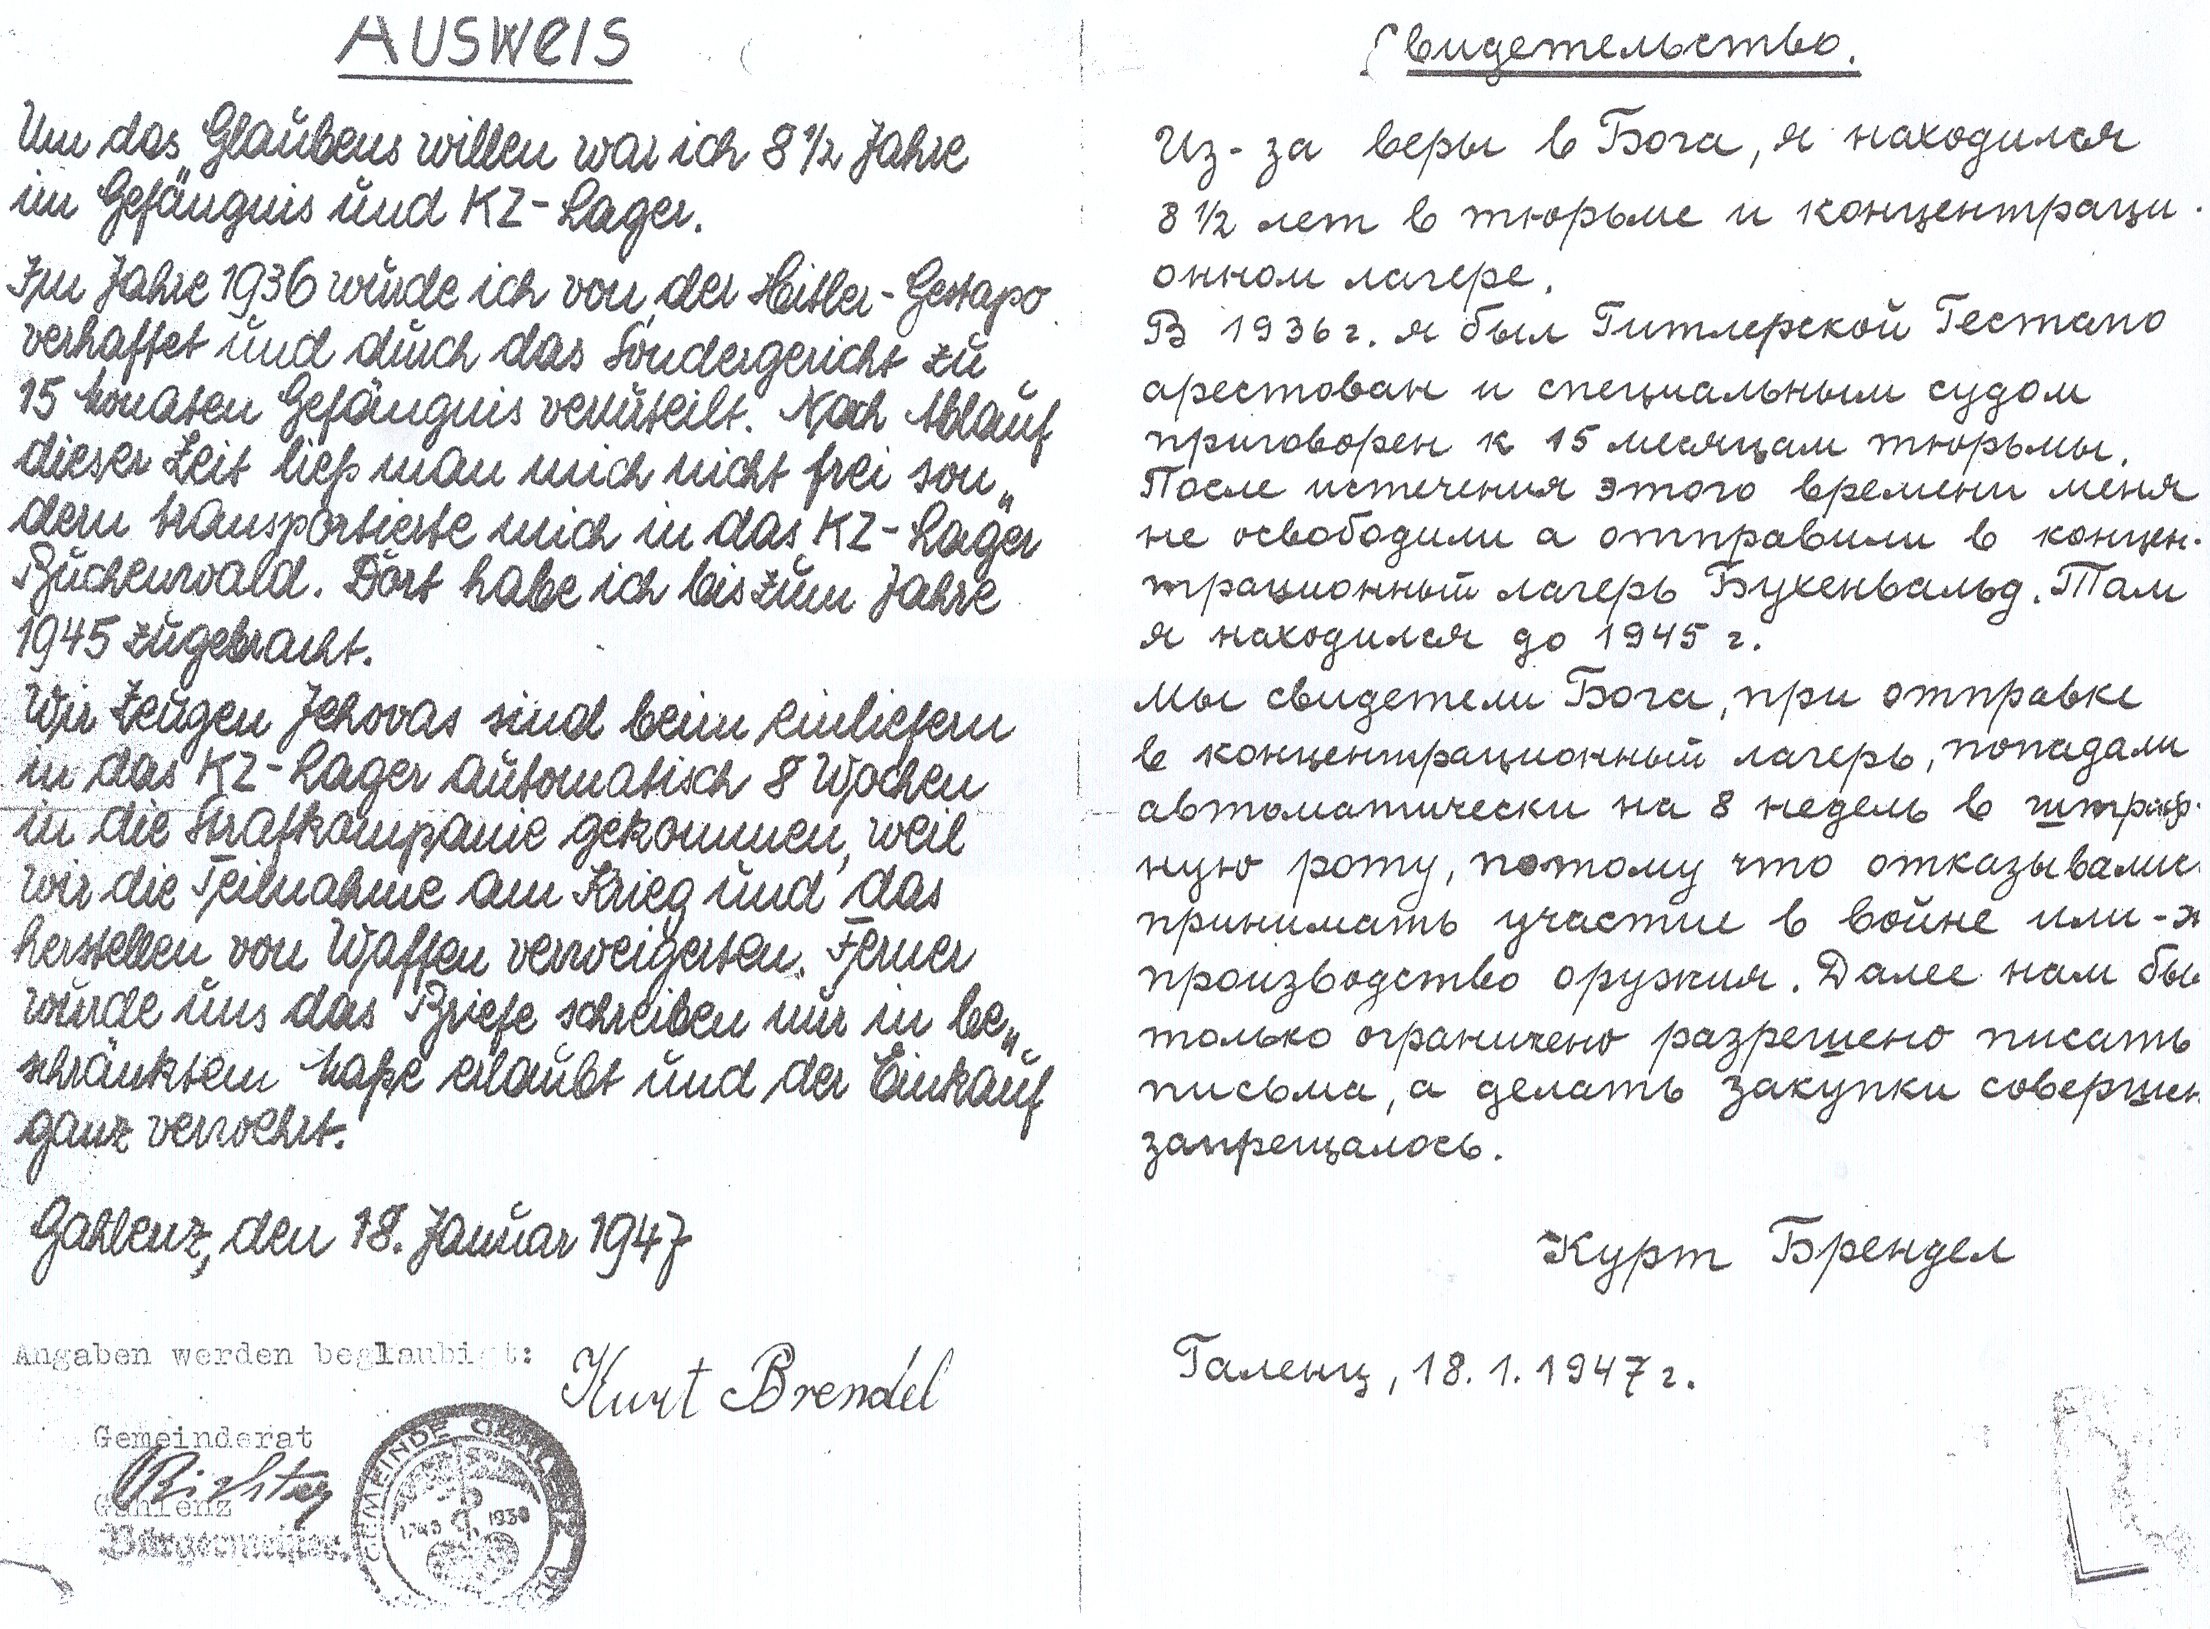 Ausweis
Um das Glaubens willen war ich 8 1/2 Jahre
im Gefängnis und KZ-Lager.
Im Jahre 1936 wurde ich von der Hitler-Gestapo
verhaftet und durch das Sondergericht zu
15 Monaten Gefängnis verurteilt. Nach Ablauf
dieser Zeit ließ man mich nicht frei son„
dern transportierte mich in das KZ-Lager
Buchenwald. Dort habe ich bis zum Jahre
1945 zugebracht.
Wir Zeugen Jehovas sind beim einliefern
in das KZ-Lager automatisch 8 Wochen
in die Strafkompanie gekommen, weil
wir die Teilnahme am Krieg und das
herstellen von Waffen verweigerten. Ferner
wurde uns das Briefe schreiben nur in be„
schränktem Maße erlaubt und der Einkauf
ganz verwehrt.
Gahlenz, den 18. Januar 1947
Angaben werden beglaubigt:
Kurt Brendel
Gemeinderat
Gahlenz
Bürgermeister.
GEMEINDE GAHLENZ
1930
Свидетельство.
Из-за веры в Бога, я находился
8 1/2 лет в тюрьме и концентраци-
онном лагере.
В 1936 г. я был Гитлерской Гестапо
арестован и специальным судом
приговорен к 15 месяцам тюрьмы.
После истечения этого времени меня
не освободили а отправили в концен-
трационный лагерь Бухенвальд. Там
я находился до 1945 г.
Мы свидетели Бога, при отправке
в концентрационный лагерь, попадали
автоматически на 8 недель в штраф-
ную роту, потому что отказывалис
принимать участие в войне или-
производство оружия. Далее нам бы
только ограничено разрешено писать
письма, а делать закупки совершен
запрещалось.
Курт Брендел
Галенц, 18.1.1947 г.